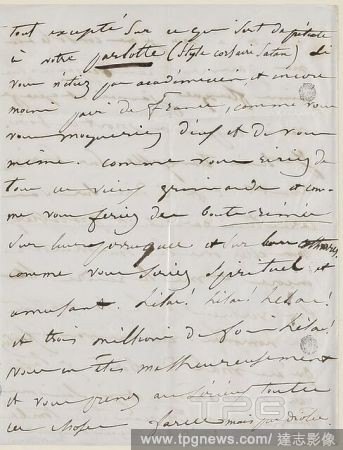 tout excepté sur ce qui sert de prétexte
à votre parlotte (style corsaire satan) si
vous n'étiez pas académicien, et encore
moins pair de france, comme vous
vous moqueriez d'eux et de vous
même. comme vous ririez de
tous ces vieux grimauds et com-
me vous feriez des bouts-rimés
sur leurs perruques et sur leurs
comme vous seriez spirituel et
amusant. hélas! hélas! hélas!
et trois millions de fois hélas!
vous en êtes malheureusement
et vous prenez au sérieux toutes
ces choses farces mais pas drôles.
TPG
www.tpgnews.com / 達志影像